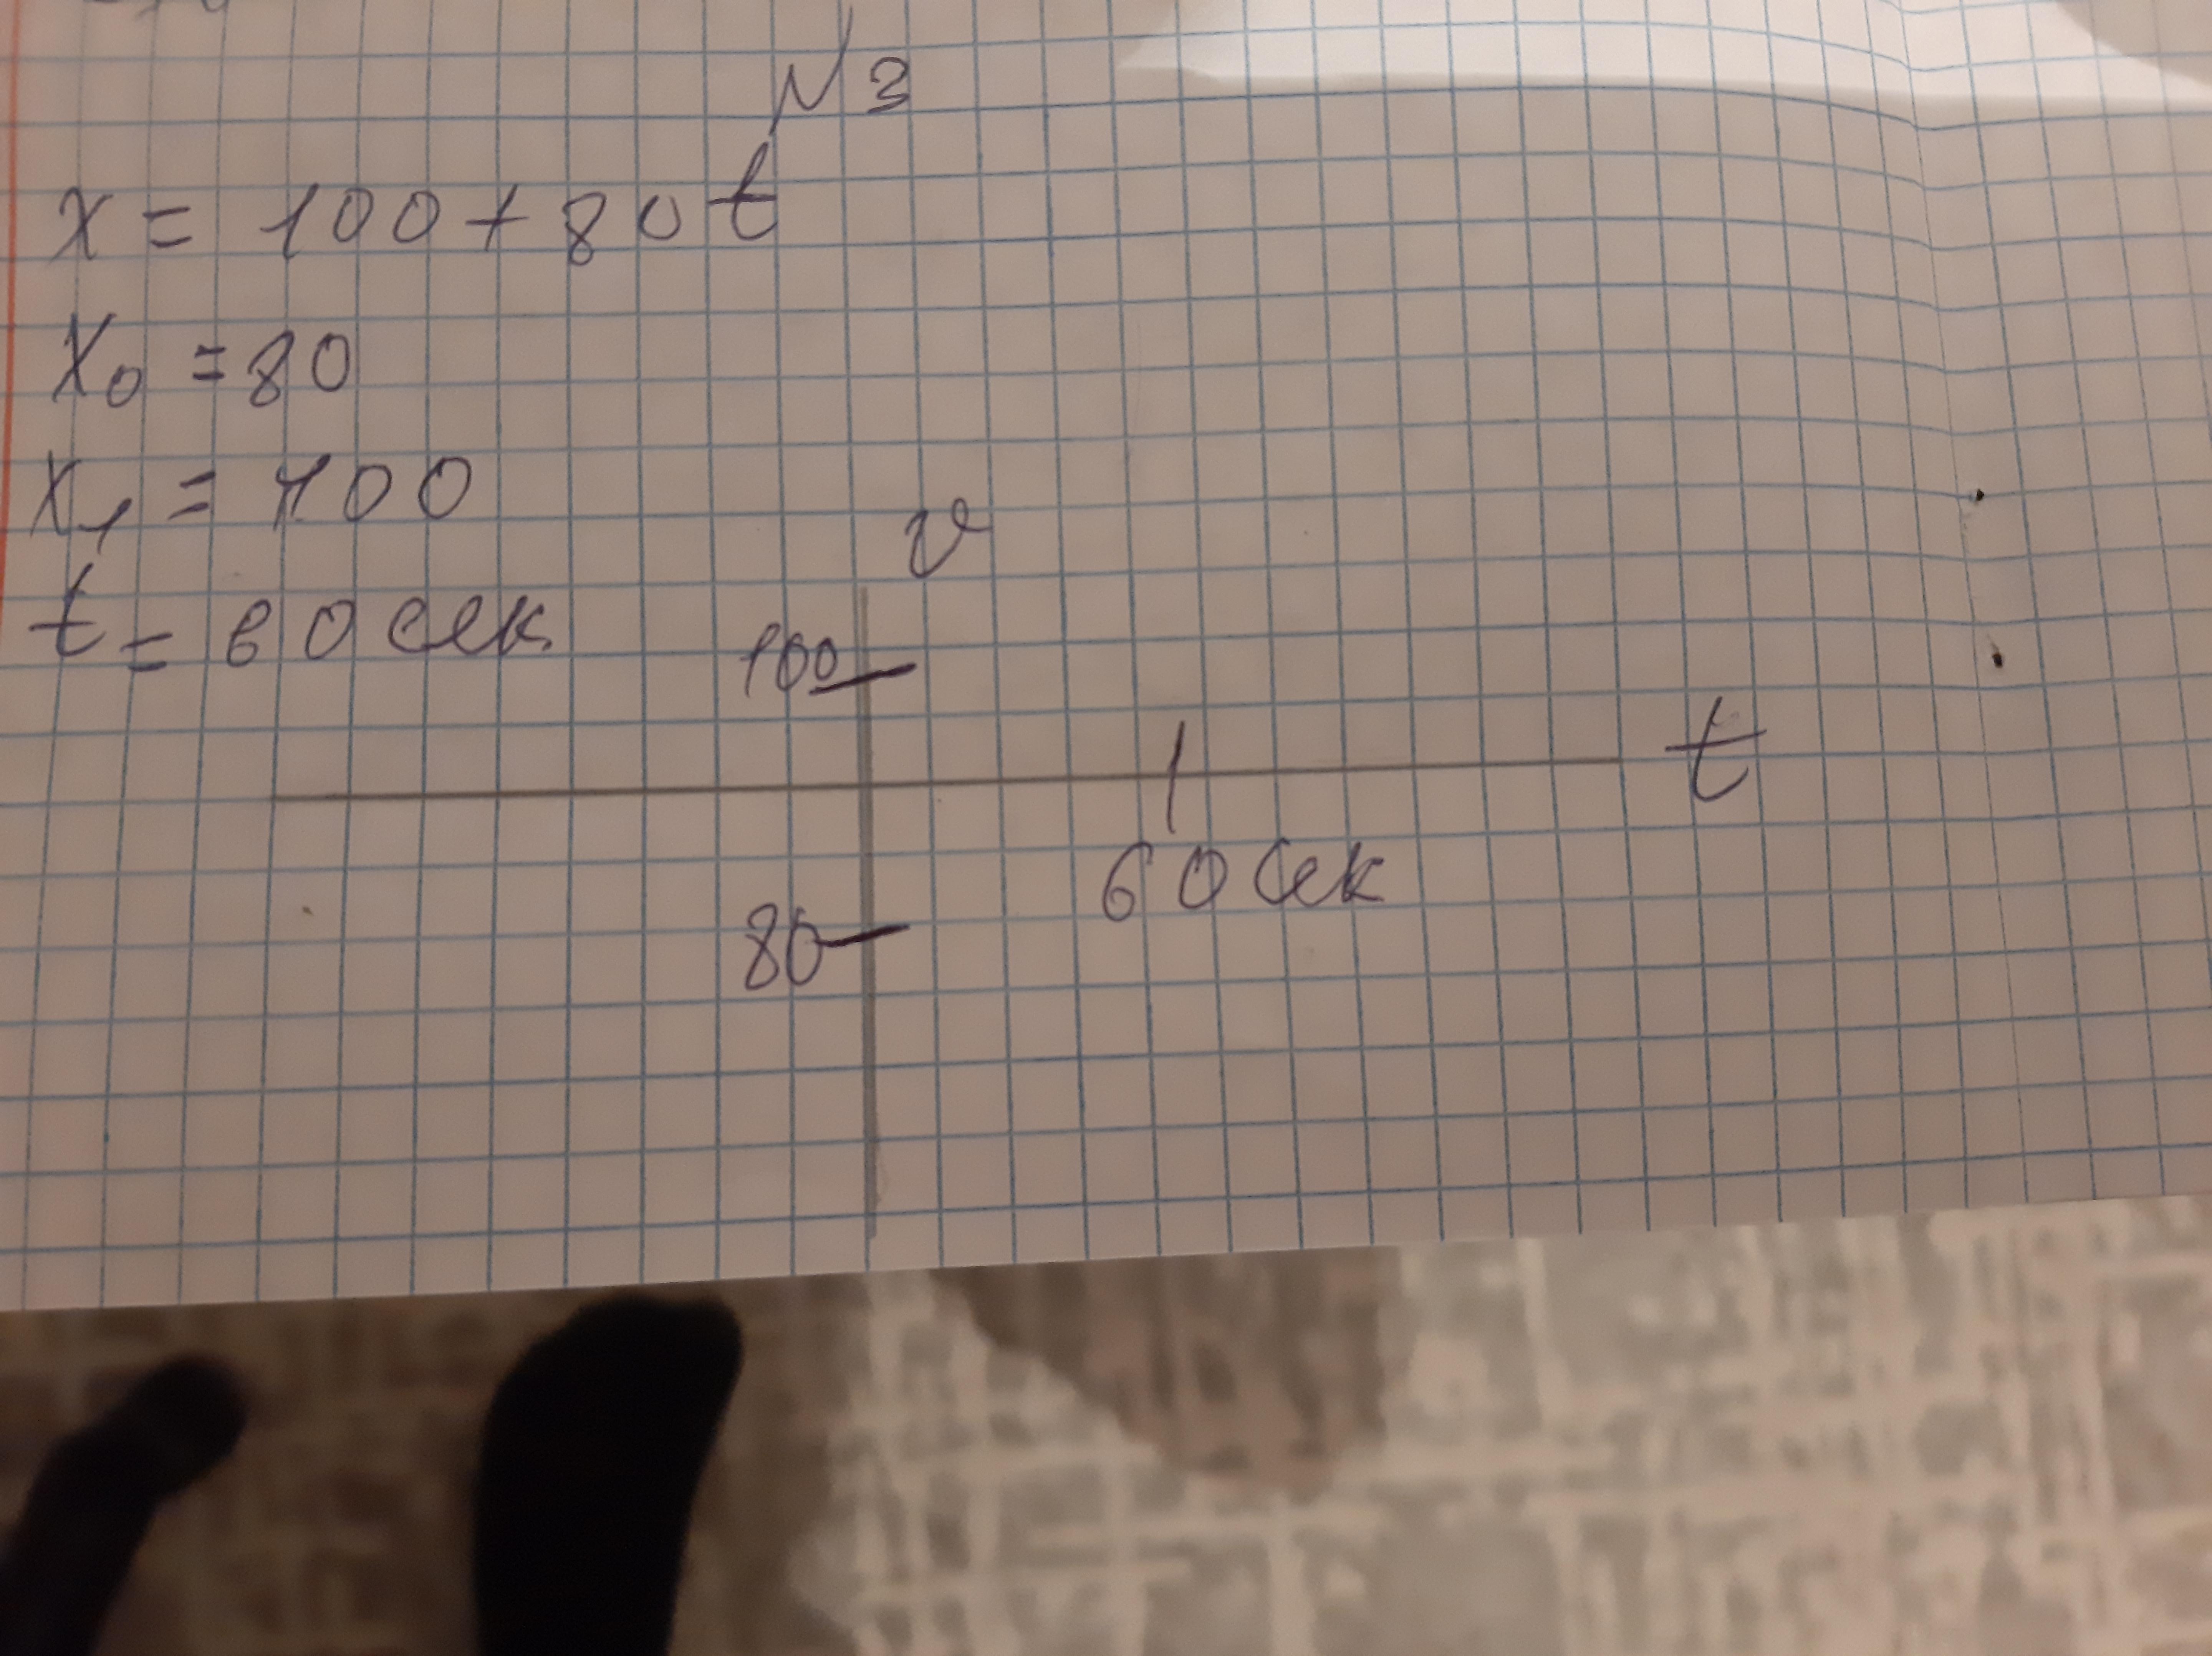 N 3
x = 100 + 80t
x₀ = 80
x₁ = 100
t = 60 сек
v
100
t
60 сек
80